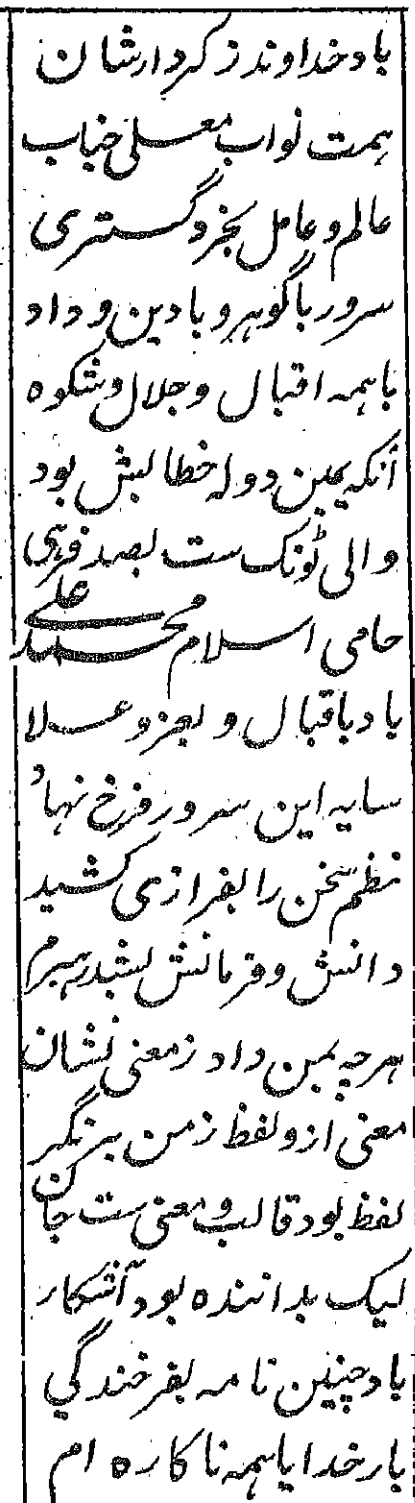 باد خداوند ز کردارشان
ہمت نواب معلی جناب
عالم و عامل بخرد گستری
سرور باگوہر و بادین و داد
باہمہ اقبال و جلال و شکوہ
آنکہ یمین دولہ خطابش بود
والی ٹونک ست بصد فرہی
حامی اسلام محمد علی
باد باقبال و بعز و علا
سایہ این سرور فرخ نہاد
نظم سخن را بفرازی کشید
دانش و فرمانش بشد رہبرم
ہرچہ بمن داد ز معنی نشان
معنی ازو لفظ ز من برنگر
لفظ بود قالب و معنی ست جان
لیک بداننده بود آشکار
باد چنین نامہ بفرخندگی
بار خدایا ہمہ ناکارہ ام